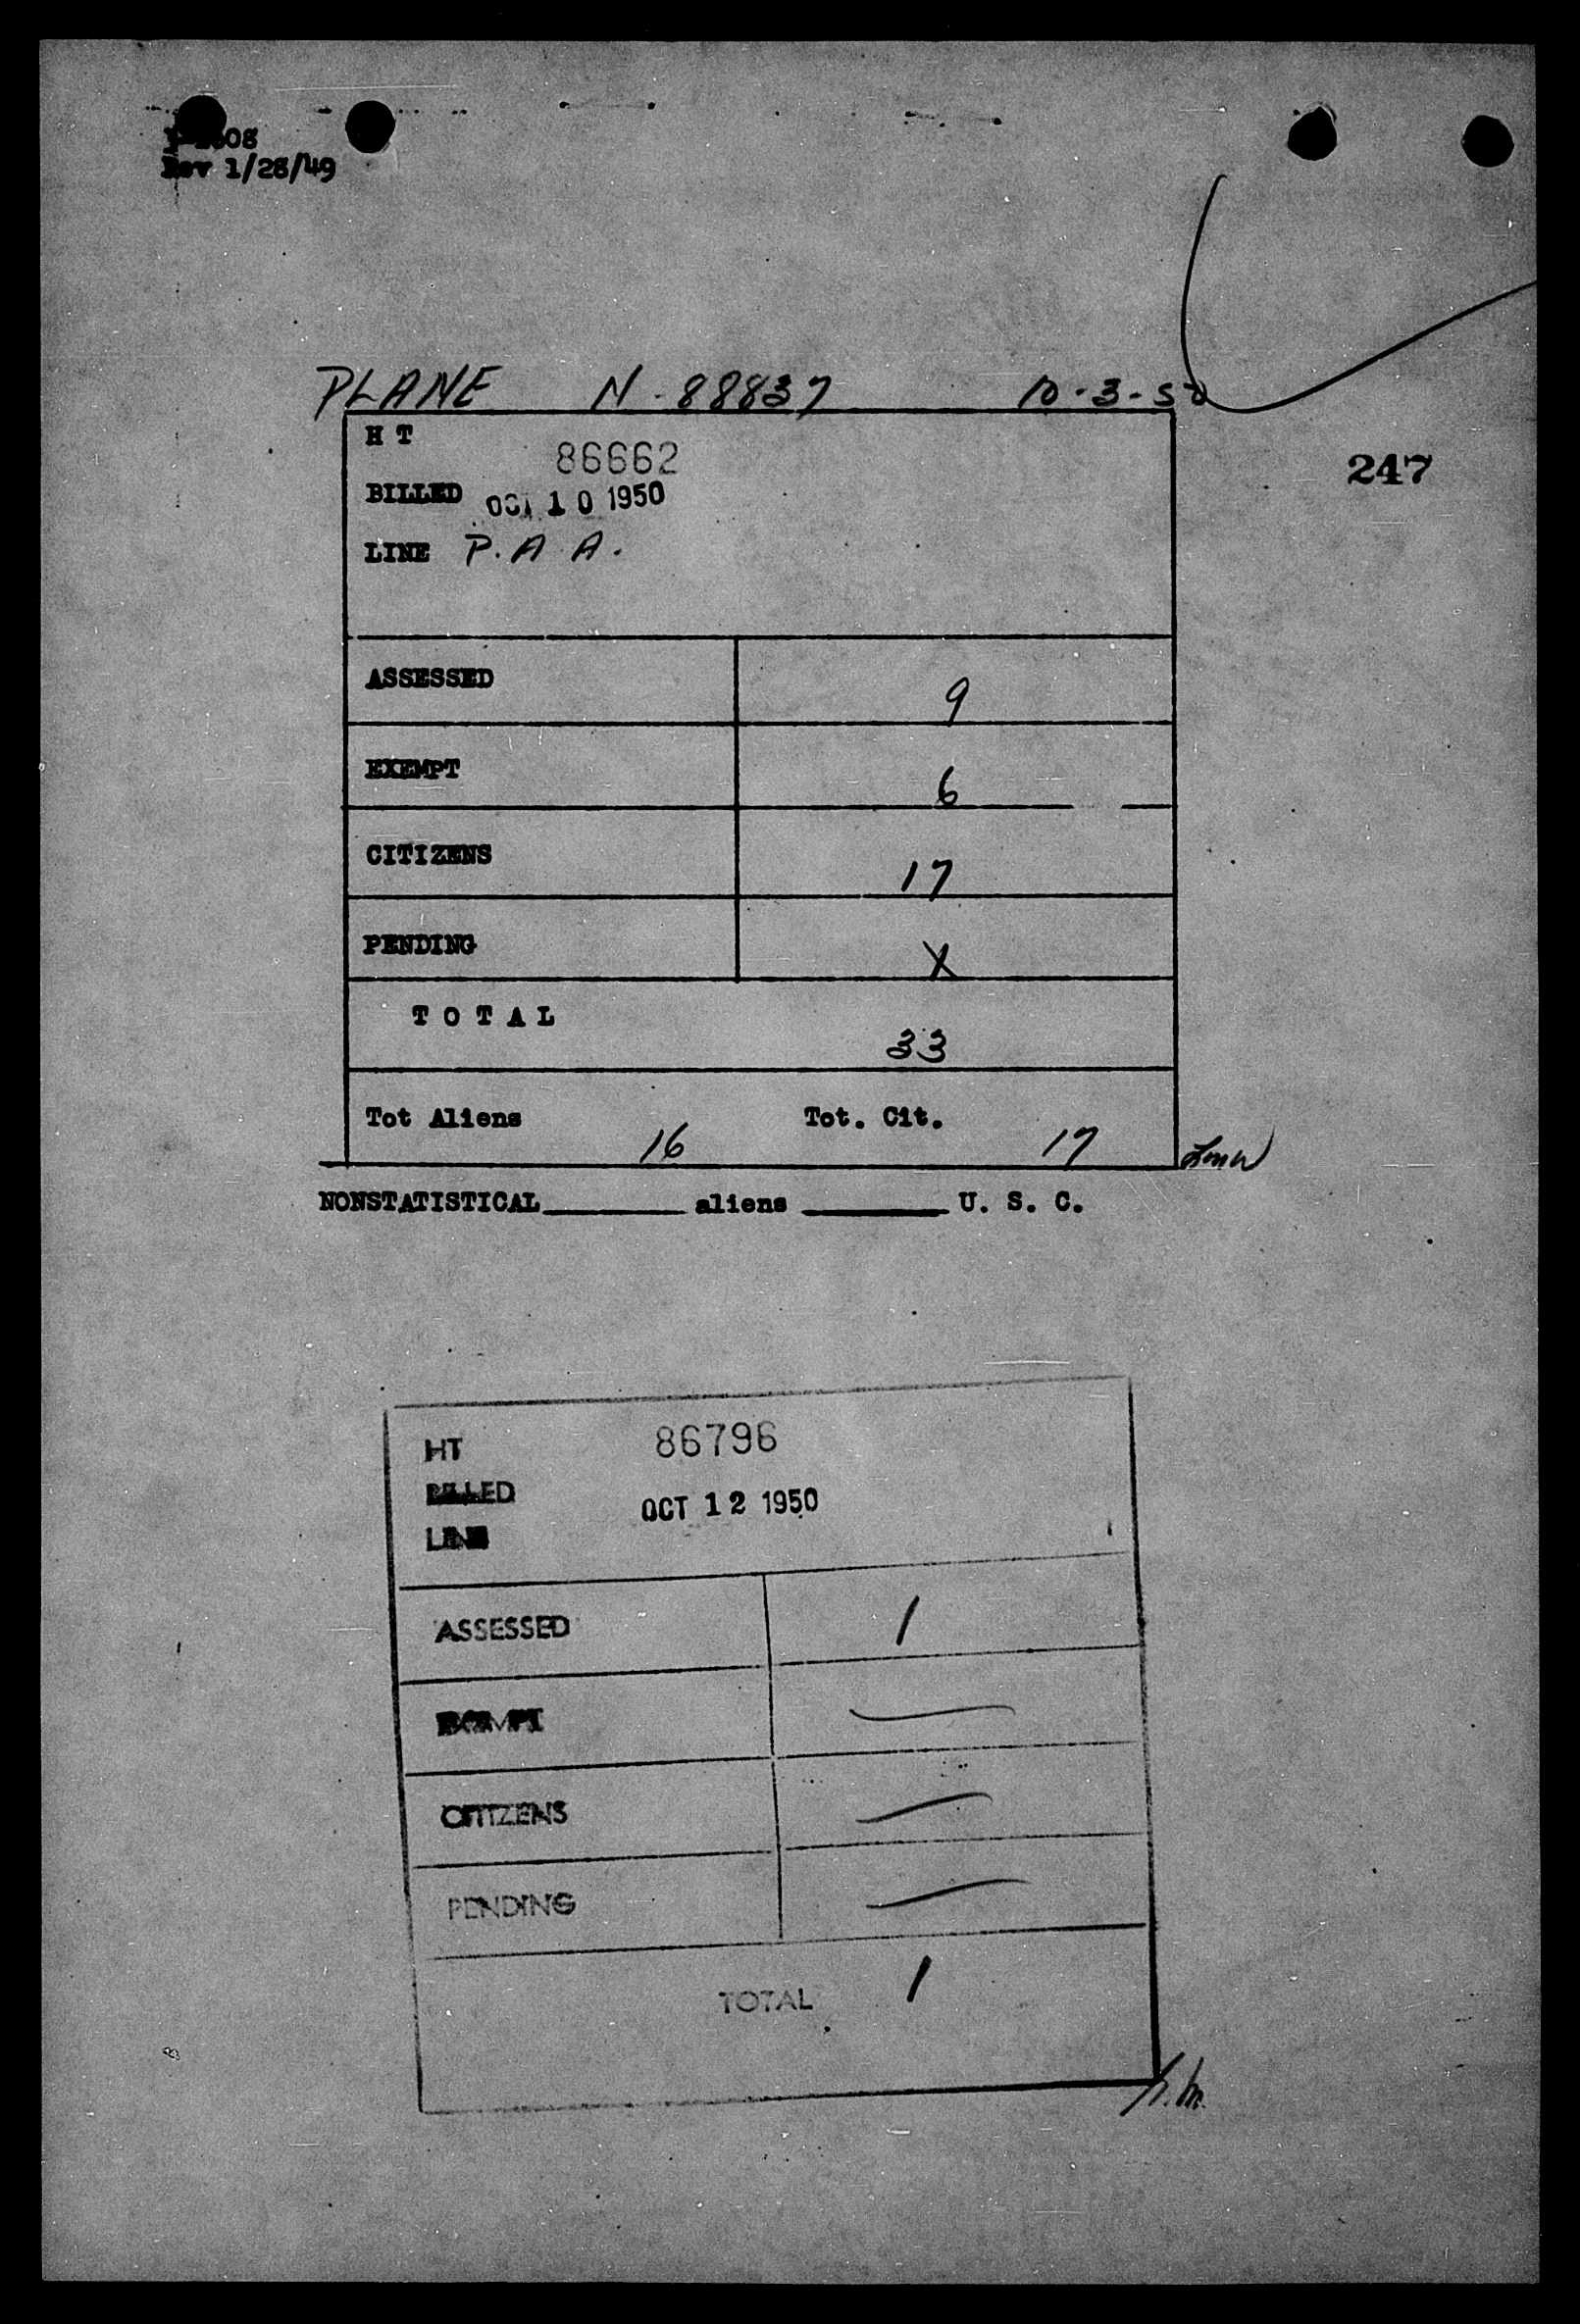 08
Rev 1/28/49
PLANE N-88837 10-3-50
H T 86662
247
BILLED OCT 10 1950
LINE P.A.A.
ASSESSED 9
EXEMPT 6
CITIZENS 17
PENDING X
TOTAL 33
Tot Aliens 16 Tot. Cit. 17
NONSTATISTICAL aliens U. S. C.
HT 86796
BILLED OCT 12 1950
LINE
ASSESSED 1
EXEMPT
CITIZENS
PENDING
TOTAL 1